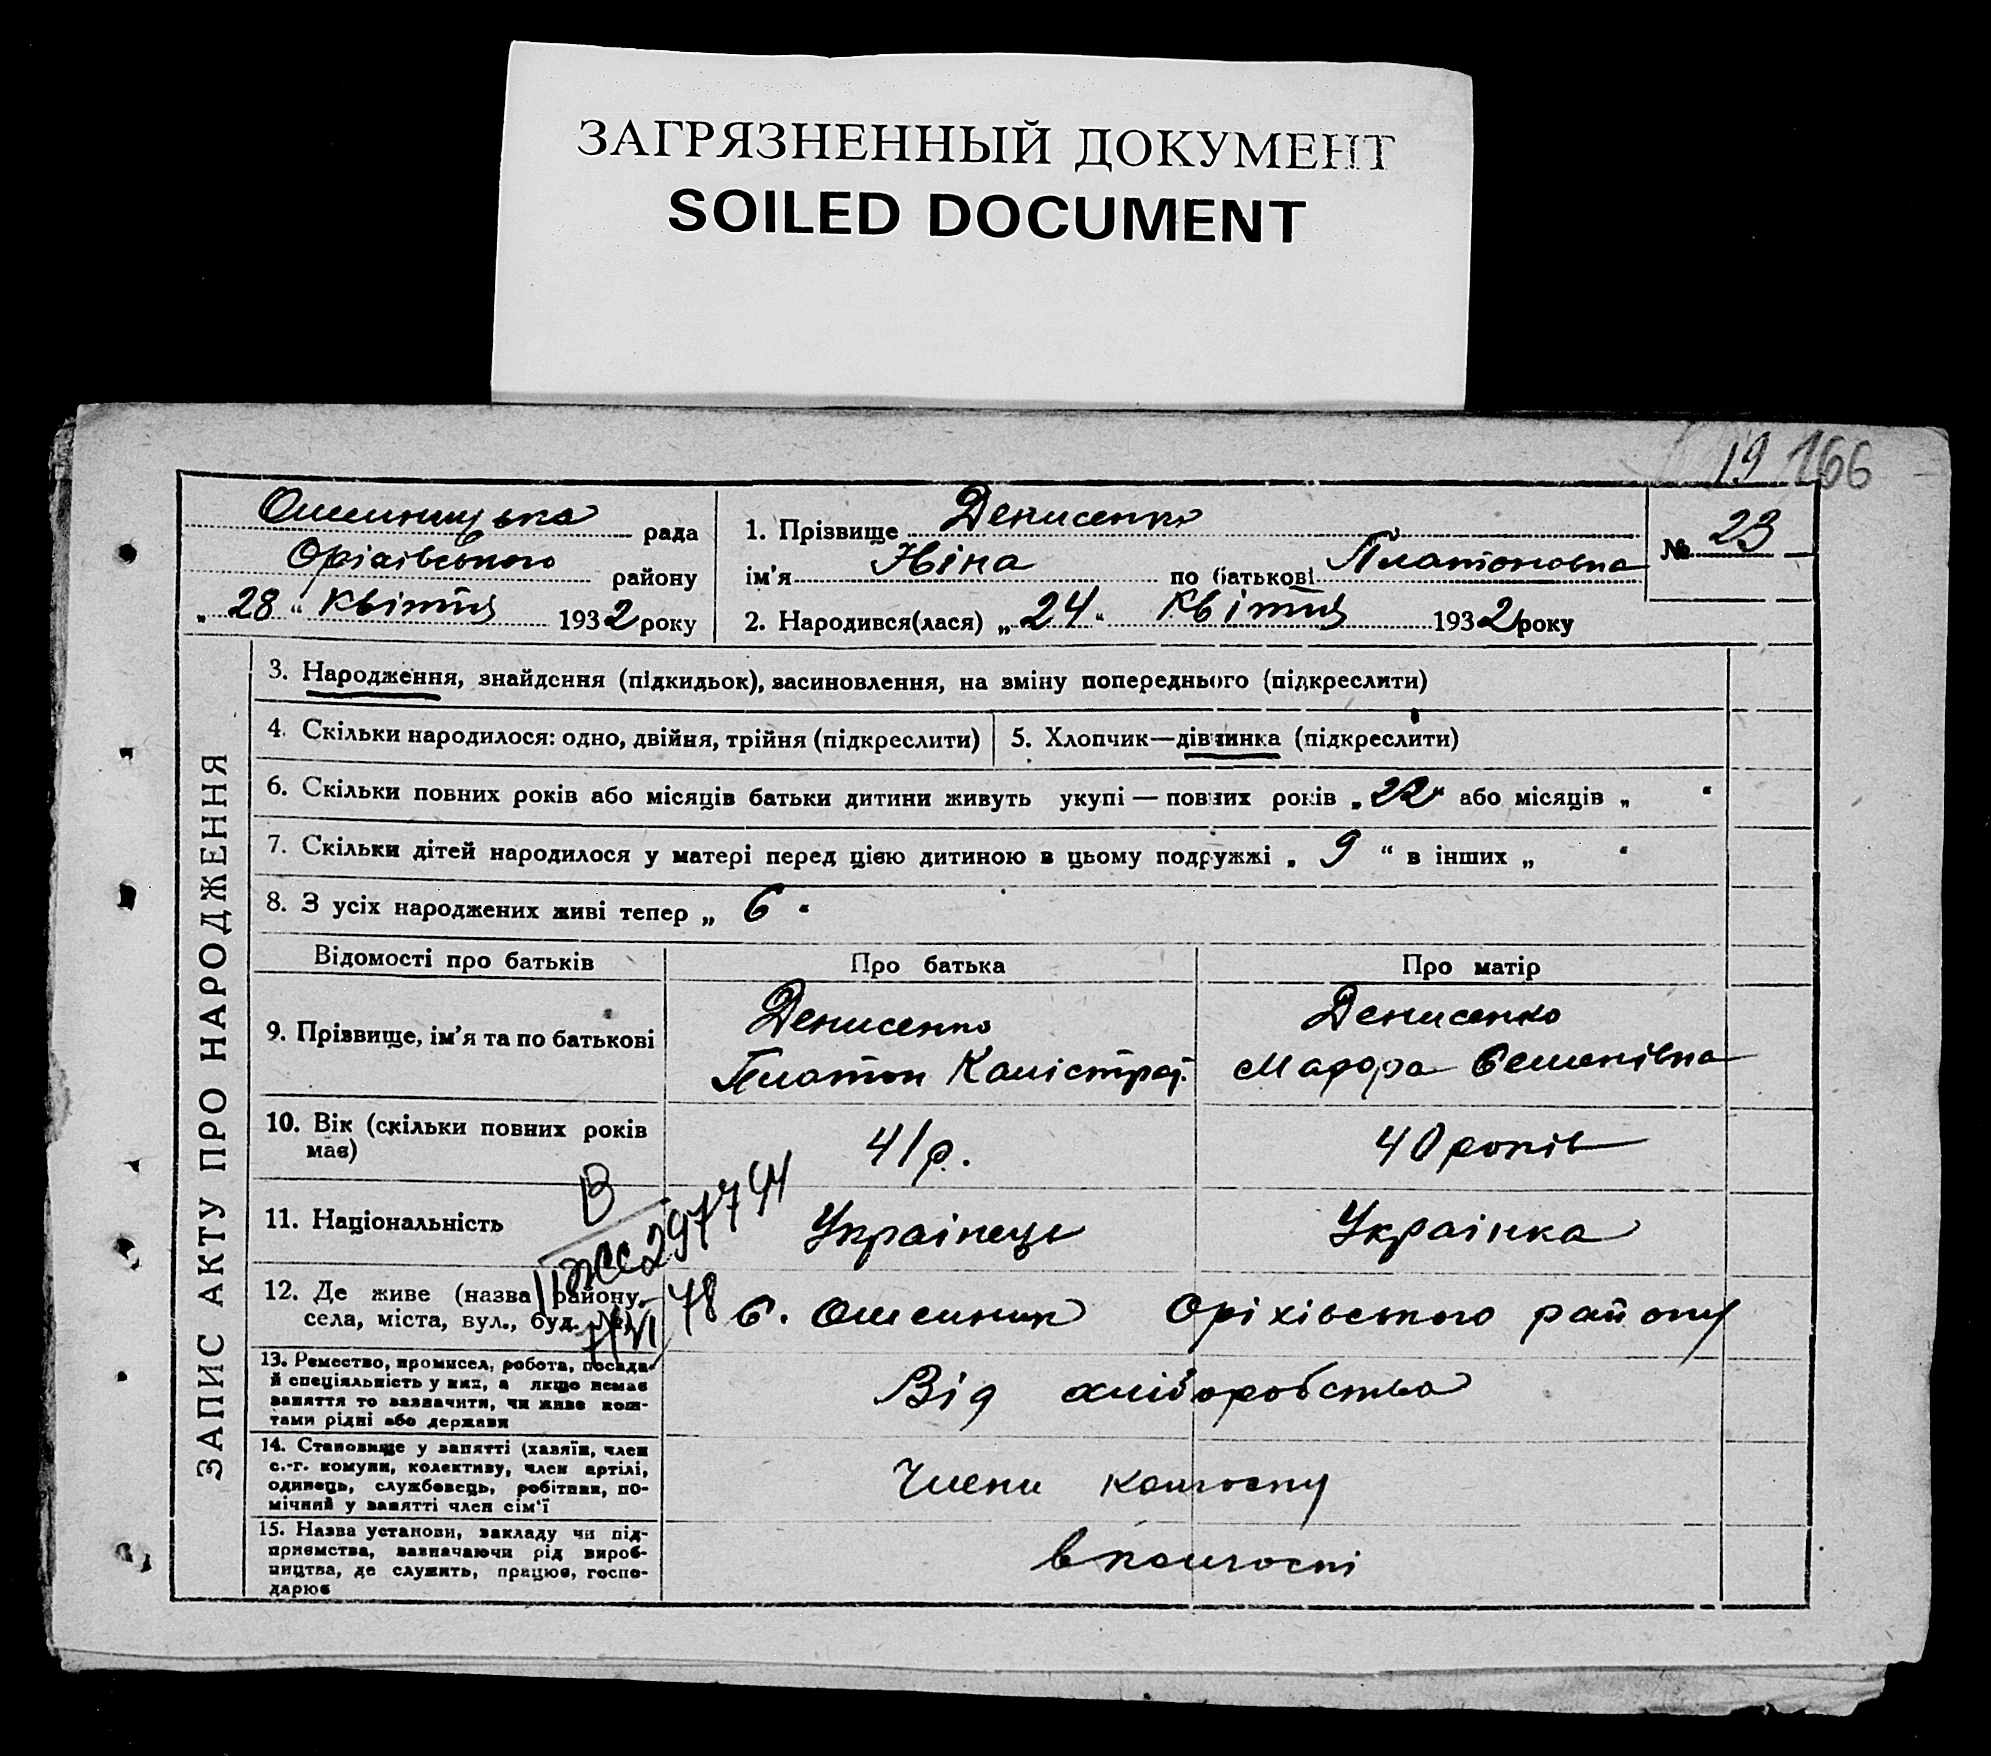 ЗАГРЯЗНЕННЫЙ ДОКУМЕНТ
SOILED DOCUMENT
19 166
рада
Оріхівського району
„ 28 “ квітня 1932 року
1. Прізвище Денисенко
ім'я Ніна по батькові Платоновна
2. Народився(лася) „ 24 “ квітня 1932 року
№ 23
ЗАПИС АКТУ ПРО НАРОДЖЕННЯ
3. Народження, знайдення (підкидьок), засиновлення, на зміну попереднього (підкреслити)
4. Скільки народилося: одно, двійня, трійня (підкреслити)
5. Хлопчик—дівчинка (підкреслити)
6. Скільки повних років або місяців батьки дитини живуть укупі — повних років „ 22 “ або місяців „ “
7. Скільки дітей народилося у матері перед цією дитиною в цьому подружжі „ 9 “ в інших „ “
8. З усіх народжених живі тепер „ 6 “
Відомості про батьків
Про батька
Про матір
9. Прізвище, ім'я та по батькові
Денисенко
Платон Калістрат.
Денисенко
Мафра Семенівна
10. Вік (скільки повних років
має)
41 р.
40 років
11. Національність
Українець
Українка
В
297794
78
12. Де живе (назва району,
села, міста, вул., буд. №)
С. Ошеники Оріхівського району
13. Ремество, промисел, робота, посада
й спеціяльність у них, а якщо немає
заняття то зазначити, чи живе кош-
тами рідні або держави
Від хліборобства
14. Становище у занятті (хазяїн, член
с.-г. комуни, колективу, член артілі,
одинець, службовець, робітник, по-
мічний у занятті член сім'ї
Члени колгоспу
15. Назва установи, закладу чи під-
приємства, зазначаючи рід вироб-
ництва, де служить, працює, госпо-
дарює
в колгоспі